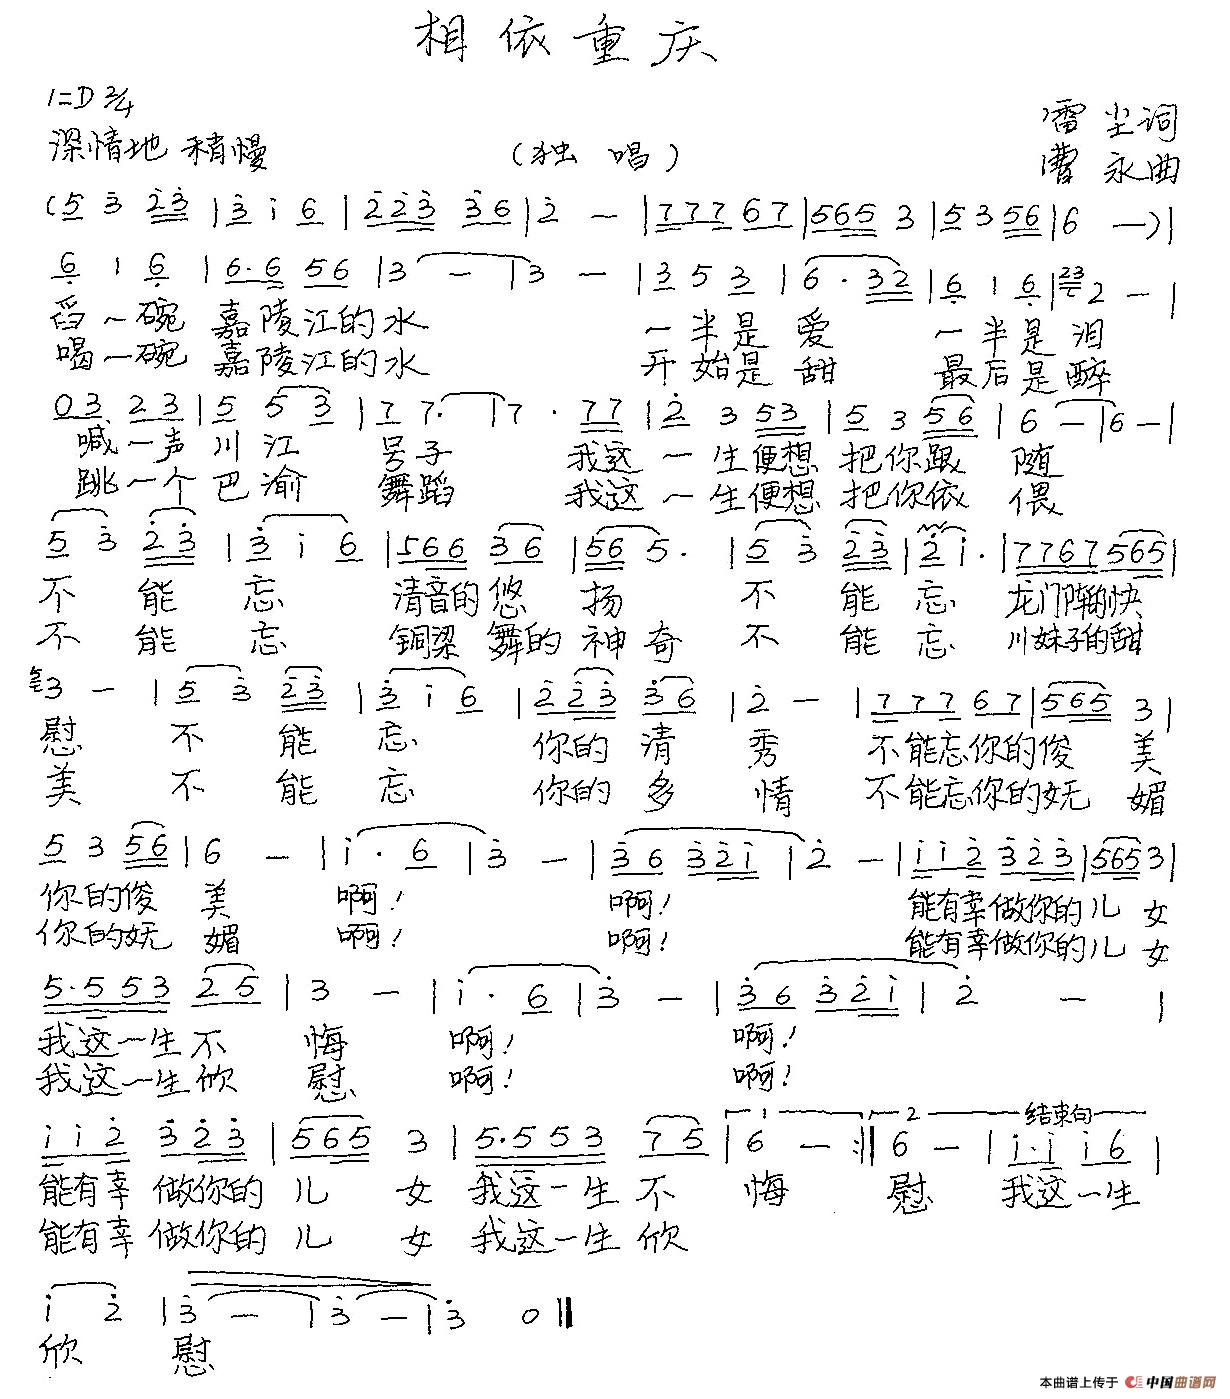 相依重庆
1=D 2/4
深情地 稍慢
(独 唱)
雷 尘词
曹 永曲
(5 3 2 3 | 3 i 6 | 2 2 3 3 6 | 2 — | 7 7 7 6 7 | 5 6 5 3 | 5 3 5 6 | 6 —) |
6 1 6 | 6· 6 5 6 | 3 — | 3 — | 3 5 3 | 6· 3 2 | 6 1 6 | 23 2 — |
舀一碗 嘉陵江的水 一半是爱 一半是泪
喝一碗 嘉陵江的水 开始是甜 最后是醉
0 3 2 3 | 5 5 3 | 7 7· | 7· 7 7 | 2 3 5 3 | 5 3 5 6 | 6 — | 6 — |
喊一声川江 号子 我这一生便想 把你跟随
跳一个巴渝 舞蹈 我这一生便想 把你依偎
5 3 2 3 | 3 i 6 | 5 6 6 3 6 | 5 6 5· | 5 3 2 3 | 2 i· | 7 7 6 7 5 6 5 |
不能忘 清音的悠扬 不能忘 龙门阵的快
不能忘 铜梁舞的神奇 不能忘 川妹子的甜
3 — | 5 3 2 3 | 3 i 6 | 2 2 3 3 6 | 2 — | 7 7 7 6 7 | 5 6 5 3 |
慰 不能忘 你的清秀 不能忘你的俊美
美 不能忘 你的多情 不能忘你的妩媚
5 3 5 6 | 6 — | i· 6 | 3 — | 3 6 3 2 i | 2 — | i i 2 3 2 3 | 5 6 5 3 |
你的俊美 啊! 啊! 能有幸做你的儿女
你的妩媚 啊! 啊! 能有幸做你的儿女
5· 5 5 3 2 5 | 3 — | i· 6 | 3 — | 3 6 3 2 i | 2 — |
我这一生不悔 啊! 啊!
我这一生欣慰 啊! 啊!
i i 2 3 2 3 | 5 6 5 3 | 5· 5 5 3 7 5 | 1 6 — :|| 2 6 — | 结束句 i· i i 6 |
能有幸 做你的儿女 我这一生不悔 慰 我这一生
能有幸 做你的儿女 我这一生欣
i 2 | 3 — | 3 — | 3 0 ||
欣 慰
本曲谱上传于 中国曲谱网